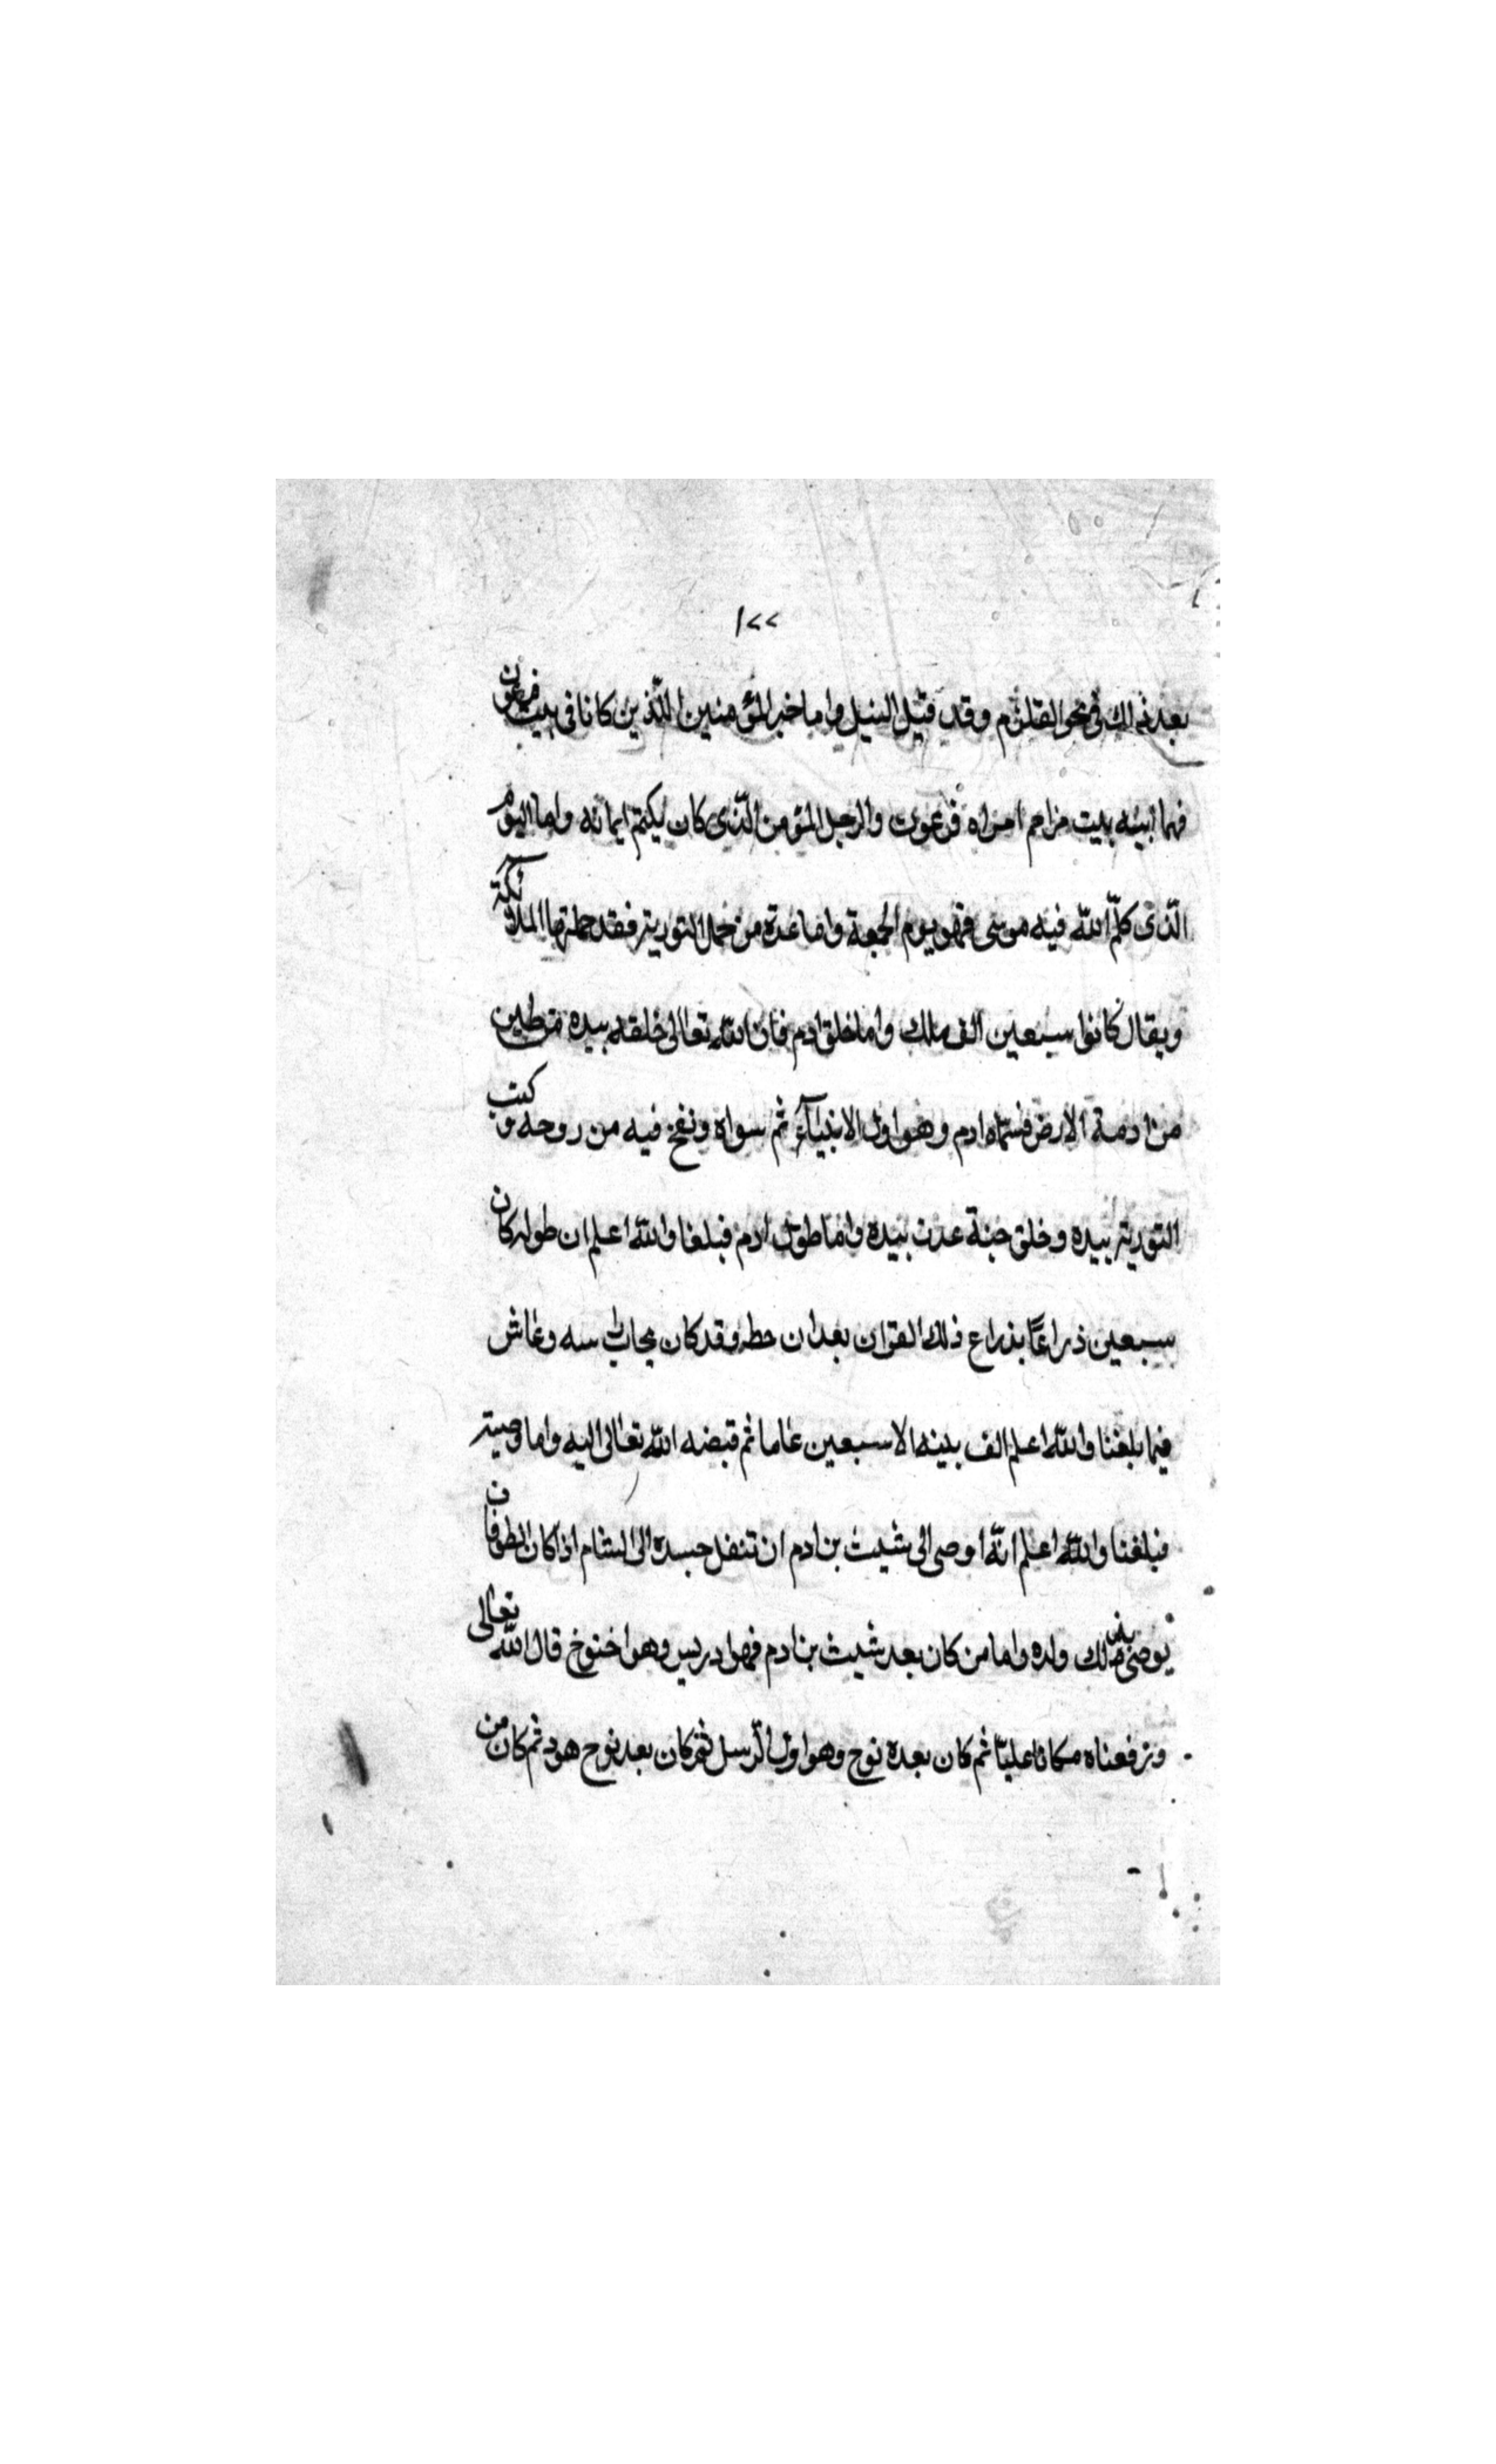 ١٢٢
بعد ذلك فى بحر القلزم وقد قيل النيل واما خبر المؤمنين اللّذين كانا فى بيت فرعون
فهما ابيه بيت مزاحم امراه فرعون والرجل المؤمن الّذى كان يكتم ايمانه واما اليوم
الّذى كلّم اللّه فيه موسى فهو يوم الجمعة واما عدة من حمل التورية فقد حملتها الملائكة
ويقال كانوا سبعين الف ملك واما خلق ادم فان اللّه تعالى خلقه بيده من طين
من ادمة الارض فسمّاه ادم وهو اول الانبيآء ثم سواه ونفخ فيه من روحه و كتب
التورية بيده وخلق جنة عدن بيده واما طول ادم فبلغنا واللّه اعلم ان طوله كان
سبعين ذراعًا بذراع ذلك القرن بعد ان حطه وقد كان راسه وعاش
فيما بلغنا واللّه اعلم الف بينه الا سبعين عاما ثم قبضه اللّه تعالى اليه واما وصيته
فبلغنا واللّه اعلم انّه اوصى الى شيث بن ادم ان تنقل جسده الى الشام اذا كان الطوفان
يوصى بذلك ولده واما من كان بعد شيث بن ادم فهو ادريس وهو اخنوخ قال اللّه تعالى
ورفعناه مكانا عليّا ثم كان بعده نوح وهو اول الرّسل ثم كان بعد نوح هود ثم كان من